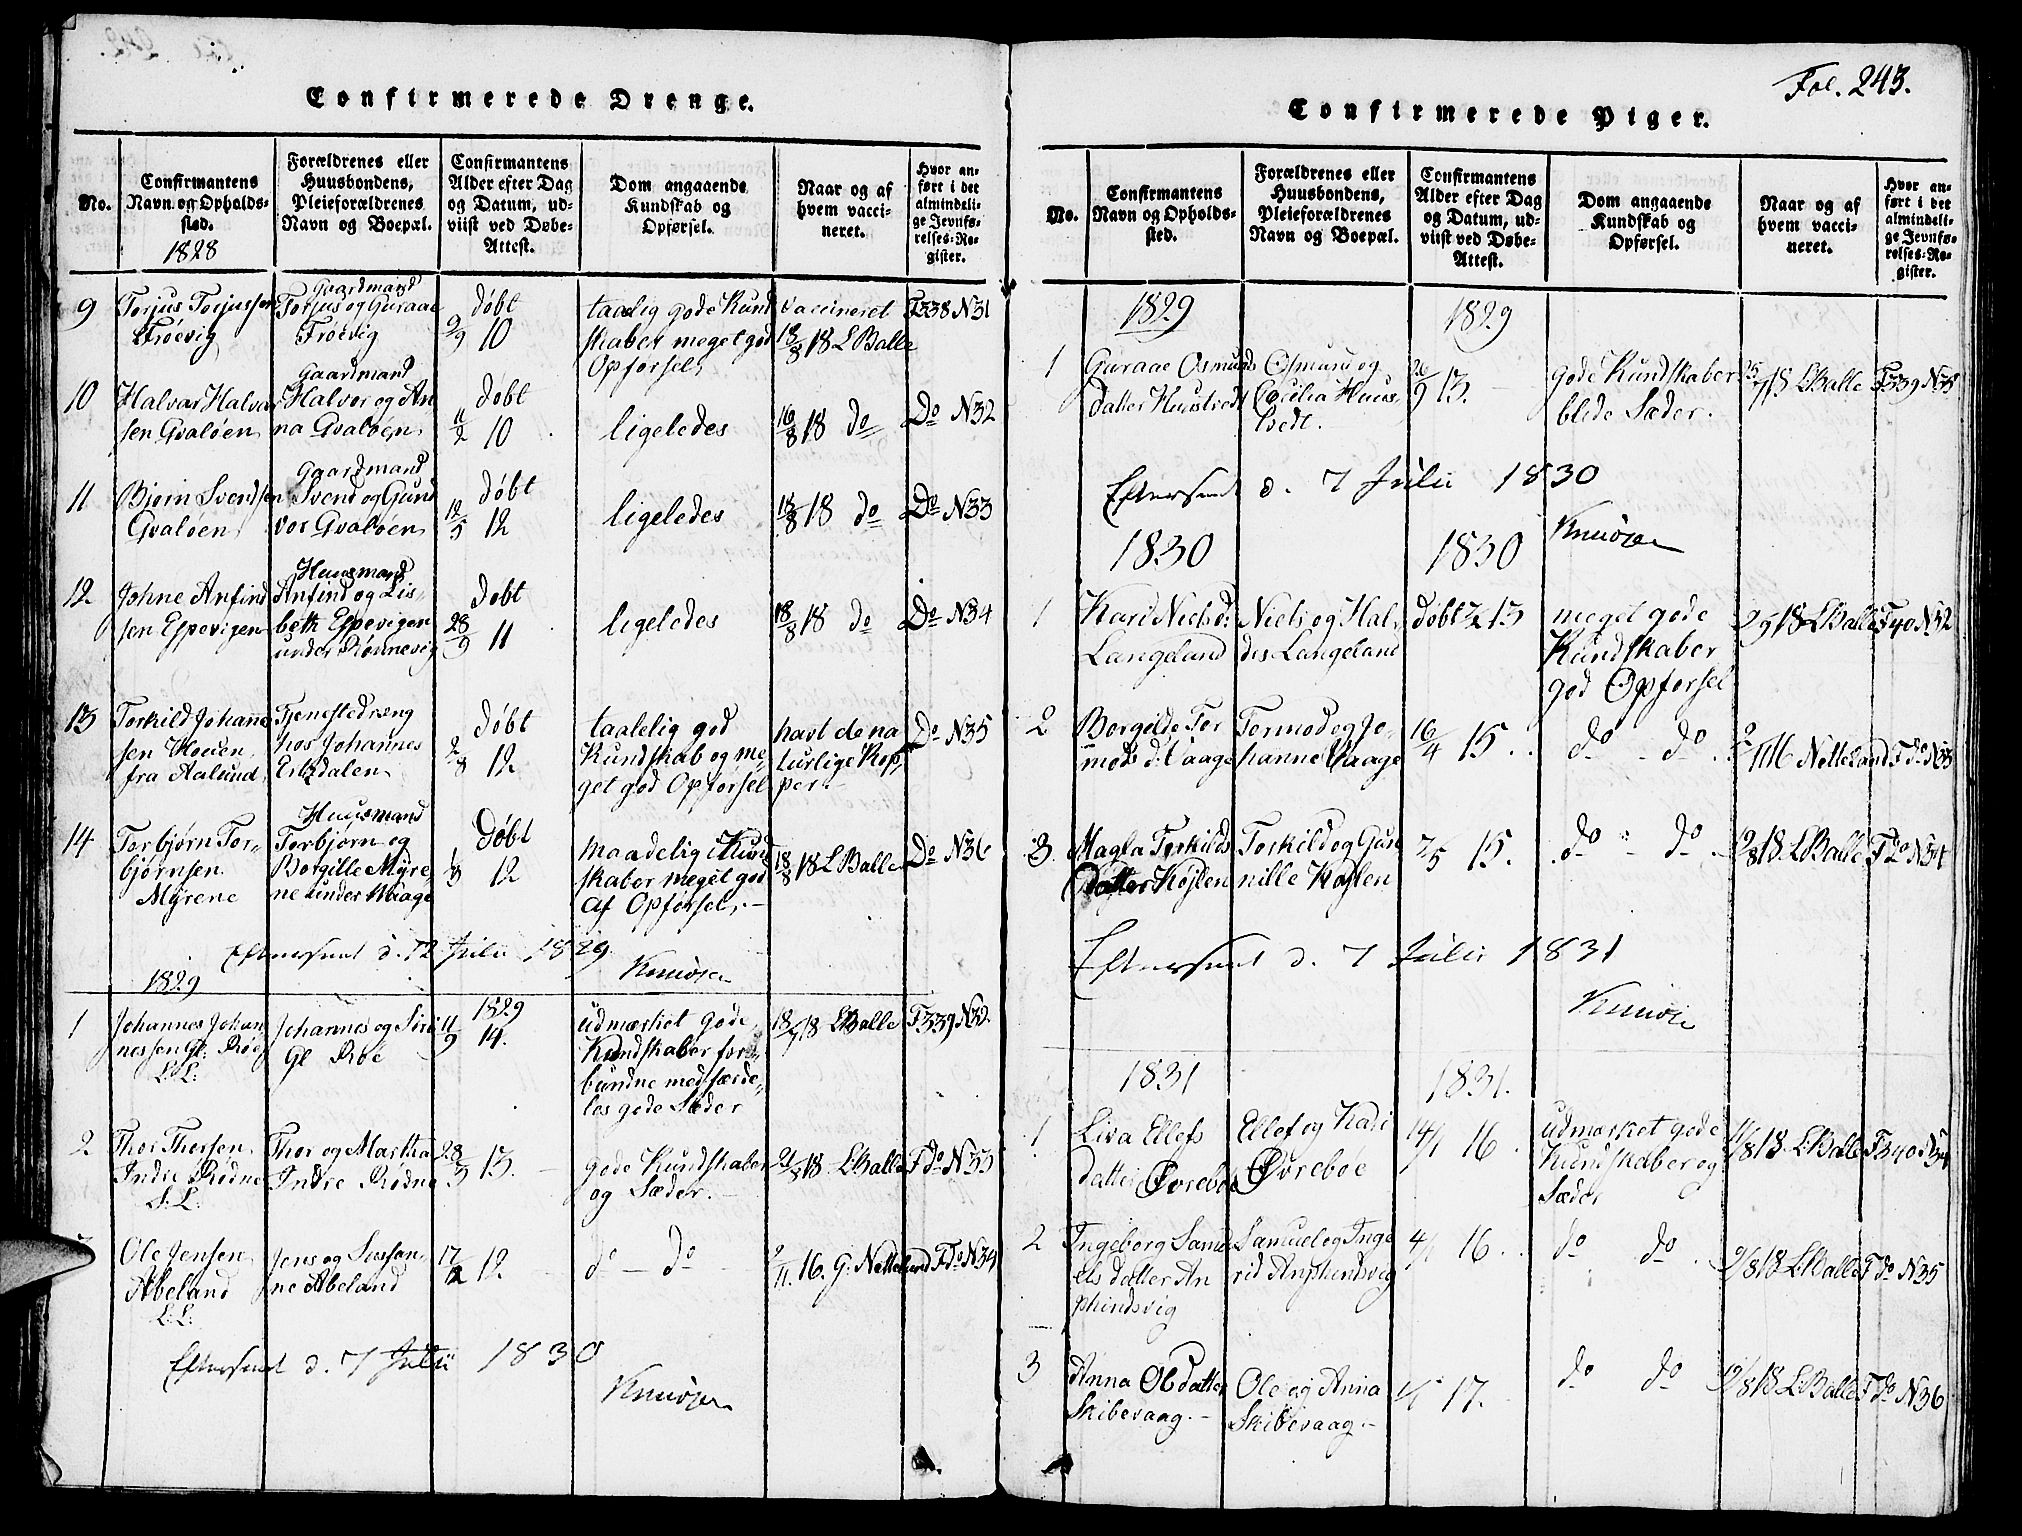 Confirmerede Drenge.
No.
Confirmantens
Navn og Opholds-
sted.
1828
Forældrenes eller
Huusbondens,
Pleieforældrenes
Navn og Boepæl.
Confirmantens
Alder efter Dag
og Datum, ud-
viist ved Døbe-
Attest.
Dom angaaende
Kundskab og
Opførsel.
Naar og af
hvem vacci-
neret.
Hvor an-
ført i det
almindeli-
ge Jevnfø-
relses-Re-
gister.
9
Torjus Torjussen
Frøevig
Gaardmand
Torjus og Guraae
Frøevig
døbt
2/9 10
taalig gode Kund
skaber meget god
Opførsel,
vaccineret
18/8 18 L Balle
F338 N31
10
Halvar Halvar
sen Gvaløen
Gaardmand
Halvor og An
na Gvaløen
døbt
11/2 10
ligeledes
16/8 18 do
Do N32
11
Bjørn Svendsen
Gvaløen
Gaardmand
Svend og Gund
vor Gvaløen
døbt
12/5 12
ligeledes
18/8 18 do
Do N33
12
Johne Anfind
sen Espevigen
Huusmand
Anfind og Lis-
beth Espevigen
under Rønnevig
døbt
28/9 11
ligeledes
18/8 18 do
Do N34
13
Torkild Johanne
sen
fra Aalund
Tjenestedræng
hos Johannes
Erlzdalen
døbt
2/8 12
taalelig god
Kundskab og me-
get god Opførsel
havt de na
turlige Kop-
per.
Do N35
14
Torbjørn Tor-
bjørnsen
Myrene
Huusmand
Torbjørn og
Borgille Myre
ne under Waage
Døbt
1/3 12
maadelig i Kund
skaber meget god
af Opførsel,
18/8 18 L Balle
Do N36
Efterseet d. 12 Julii 1829
Knudsen
1829
1829
1
Johannes Johan
nessen Gl: Røe
L:L:
Johannes og Siri
Gl Røe
11/9 14.
udmærket gode
Kundskaber for-
bundne med særde-
les gode Sæder
18/9 18 LBalle
F339 N32.
2
Thor Thorsen
Indre Rødne
L:L:
Thor og Martha
Indre Rødne
28/3 13.
gode Kundskaber
og Sæder.
21/8 18 LBalle
F do N33
Ole Jensen
Abeland
L:L:
Jens og Sussan
ne Abeland
17/12 12.
do - do
9/11 16. G: Netteland
F do N34
Efterseet d. 7 Julii 1830
Knudsen
Fol. 243.
Confirmerede Piger.
No.
Confirmantens
Navn og Opholds-
sted.
Forældrenes eller
Huusbondens,
Pleieforældrenes
Navn og Boepæl.
Confirmantens
Alder efter Dag
og Datum, ud-
viist ved Døbe-
Attest.
Dom angaaende
Kundskab og
Opførsel.
Naar og af
hvem vacci-
neret.
Hvor an-
ført i det
almindeli-
ge Jevnfø-
relses-Re-
gister.
1829
1829
1
Guraae Osmunds
datter Huustvedt
Osmund og
Cecilia Huus
tvedt.
26/9 13.
gode Kundskaber
blede Sæder.
25/7 18 LBalle
F339 N35
Efterseet d. 7 Julii 1830
Knudsen
1830
1830
1
Kari Nielsd:
Langeland
Niels og Hal
dis Langeland
døbt 2/2 13
meget gode
Kundskaber
god Opførsel
2/9 18 LBalle
F340 N32
2
Borgilde Tor
mods d: Vaage
Tormod og Jo-
hanne Vaage
16/4 15.
do - do
9/11 16 Netteland
F do N33
3
Magla Torkilds
datter Køjlen
Torkild og Gun
nille Køjlen
2/5 15.
do - do
19/8 18. LBalle
F Do N34
Efterseet d. 7 Julii 1831
Knudsen
1831
1831.
1
Liva Ellefs
datter Øvrebøe
Ellef og Kari
Øvrebøe
14/1 16
udmærket gode
Kundskaber og
Sæder
11/8 18. LBalle
F340
2
Ingeborg Samu
els datter An
phindsvig
Samuel og Inge
rid Anphindsvig
4/1 16
do do
9/8 18 LBalle
F do N35
3
Anna Ol datter
Skibevaag.
Ole og Anna
Skibevaag.
1/1 17.
do do
19/8 18 LBalle
F do N36